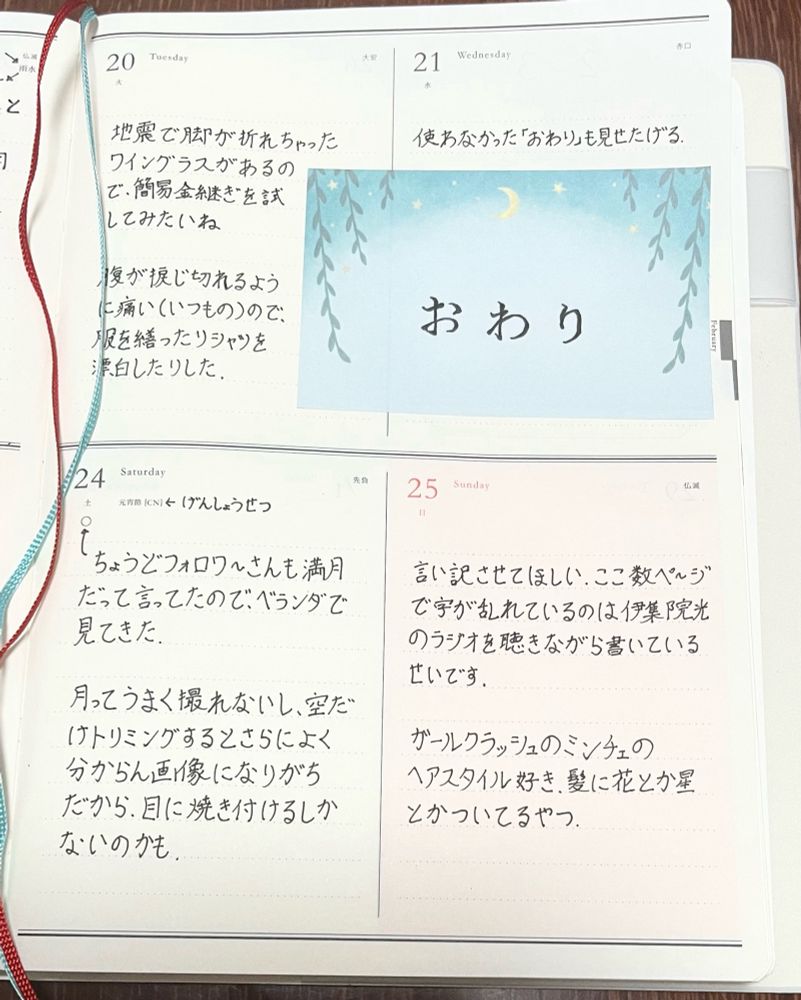 仏滅
雨水
と
20 Tuesday 大安
火
地震で脚が折れちゃった
ワイングラスがあるの
で、簡易金継ぎを試
してみたいね
腹が捩じ切れるよう
に痛い(いつもの)ので、
服を繕ったりシャツを
漂白したりした.
21 Wednesday 赤口
水
使わなかった「おわり」も見せたげる.
おわり
February
24 Saturday 先負
土 元宵節 [CN] ← げんしょうせつ
ちょうどフォロワ〜さんも満月
だって言ってたので、ベランダで
見てきた.
月ってうまく撮れないし、空だ
けトリミングするとさらによく
分からん画像になりがち
だから、目に焼き付けるしか
ないのかも.
25 Sunday 仏滅
日
言い訳させてほしい. ここ数ペ〜ジ
で字が乱れているのは伊集院光
のラジオを聴きながら書いている
せいです.
ガールクラッシュのミンチェの
ヘアスタイル好き. 髪に花とか星
とかついてるやつ.